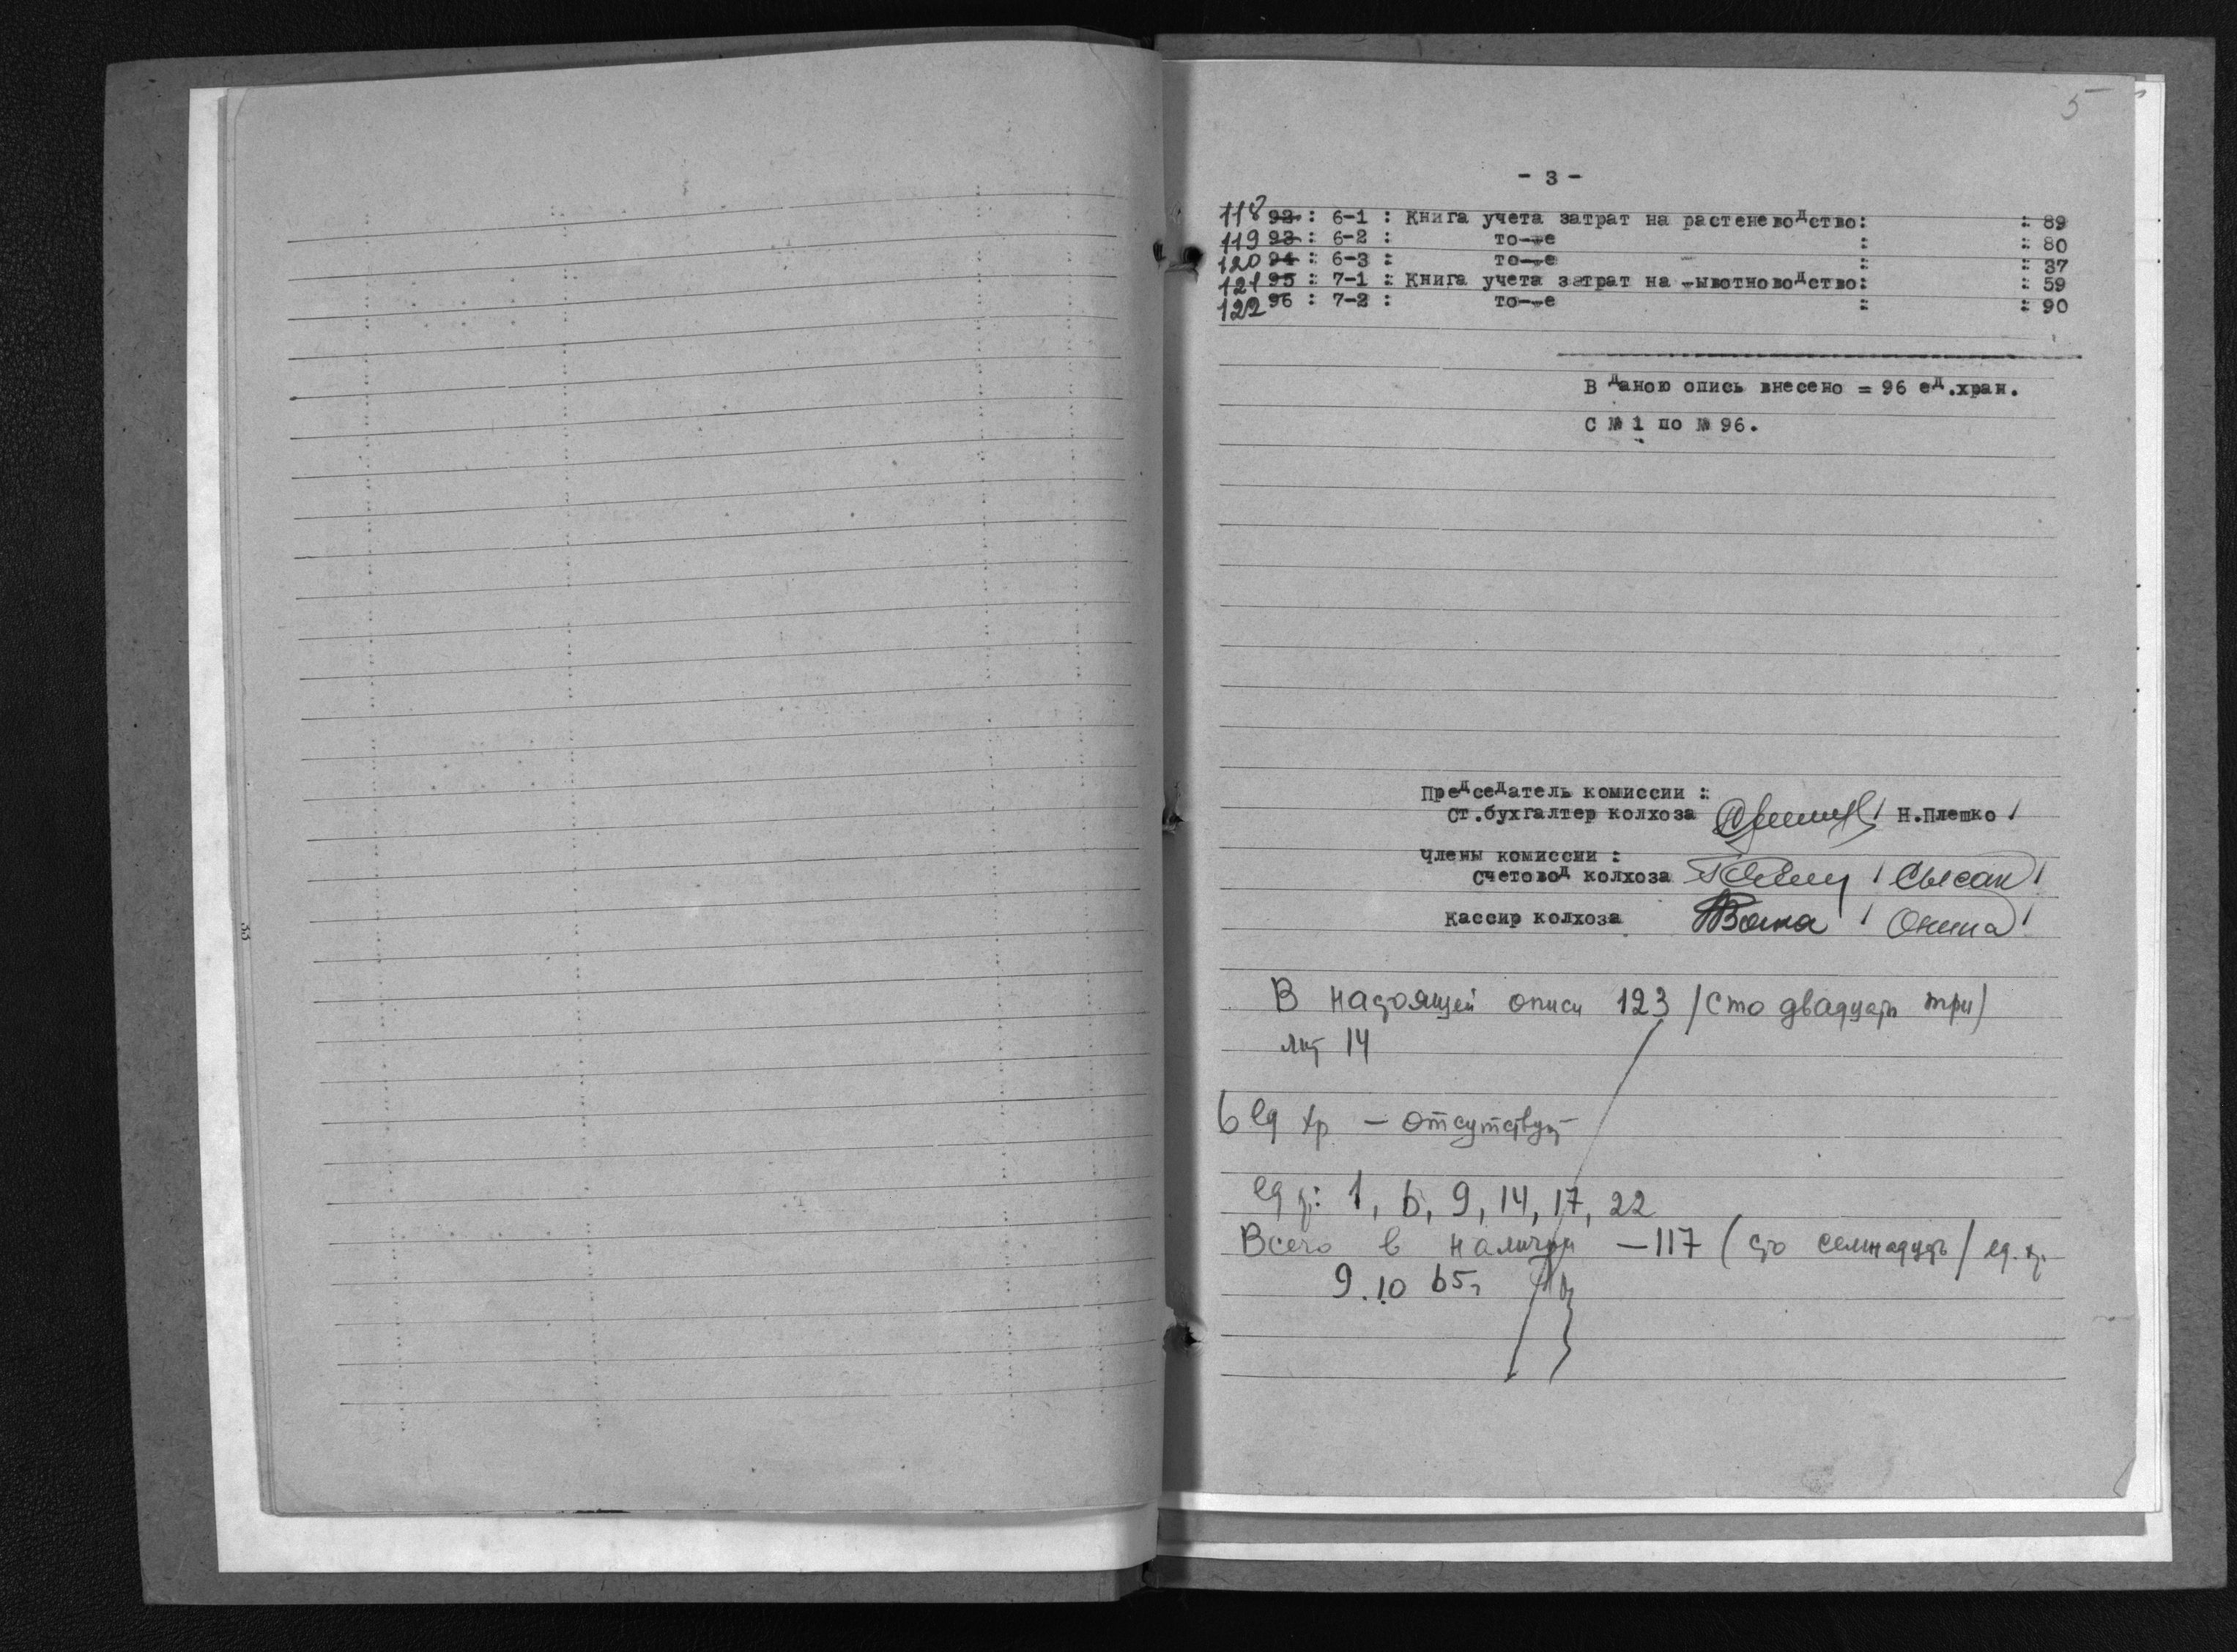 5
- 3 -
118 92 : 6-1 : Книга учета затрат на растеневодство: : 89
119 93 : 6-2 : то-же : : 80
120 94 : 6-3 : то-же : : 37
121 95 : 7-1 : Книга учета затрат на -ывотноводство: : 59
122 96 : 7-2 : то-же : : 90
В даною опись внесено = 96 ед.хран.
С № 1 по № 96.
Председатель комиссии :
Ст.бухгалтер колхоза / Н.Плешко /
Члены комиссии :
Счетовод колхоза / Сысак /
Кассир колхоза / Окина /
В настоящей описи 123 /сто двадцать три/
лит 14
6 ед хр - отсутствует
ед хр: 1, 6, 9, 14, 17, 22
Всего в наличии - 117 (сто семнадцать/ ед. хр.
9.10 65г
33